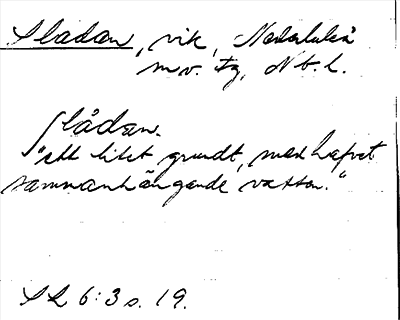 Sladan, vik, Nederluleå
sn. Nb. l.
slådan.
"ett litet grundt, med hafvet
sammanhängande vatten."
SL 6:3 s. 19.